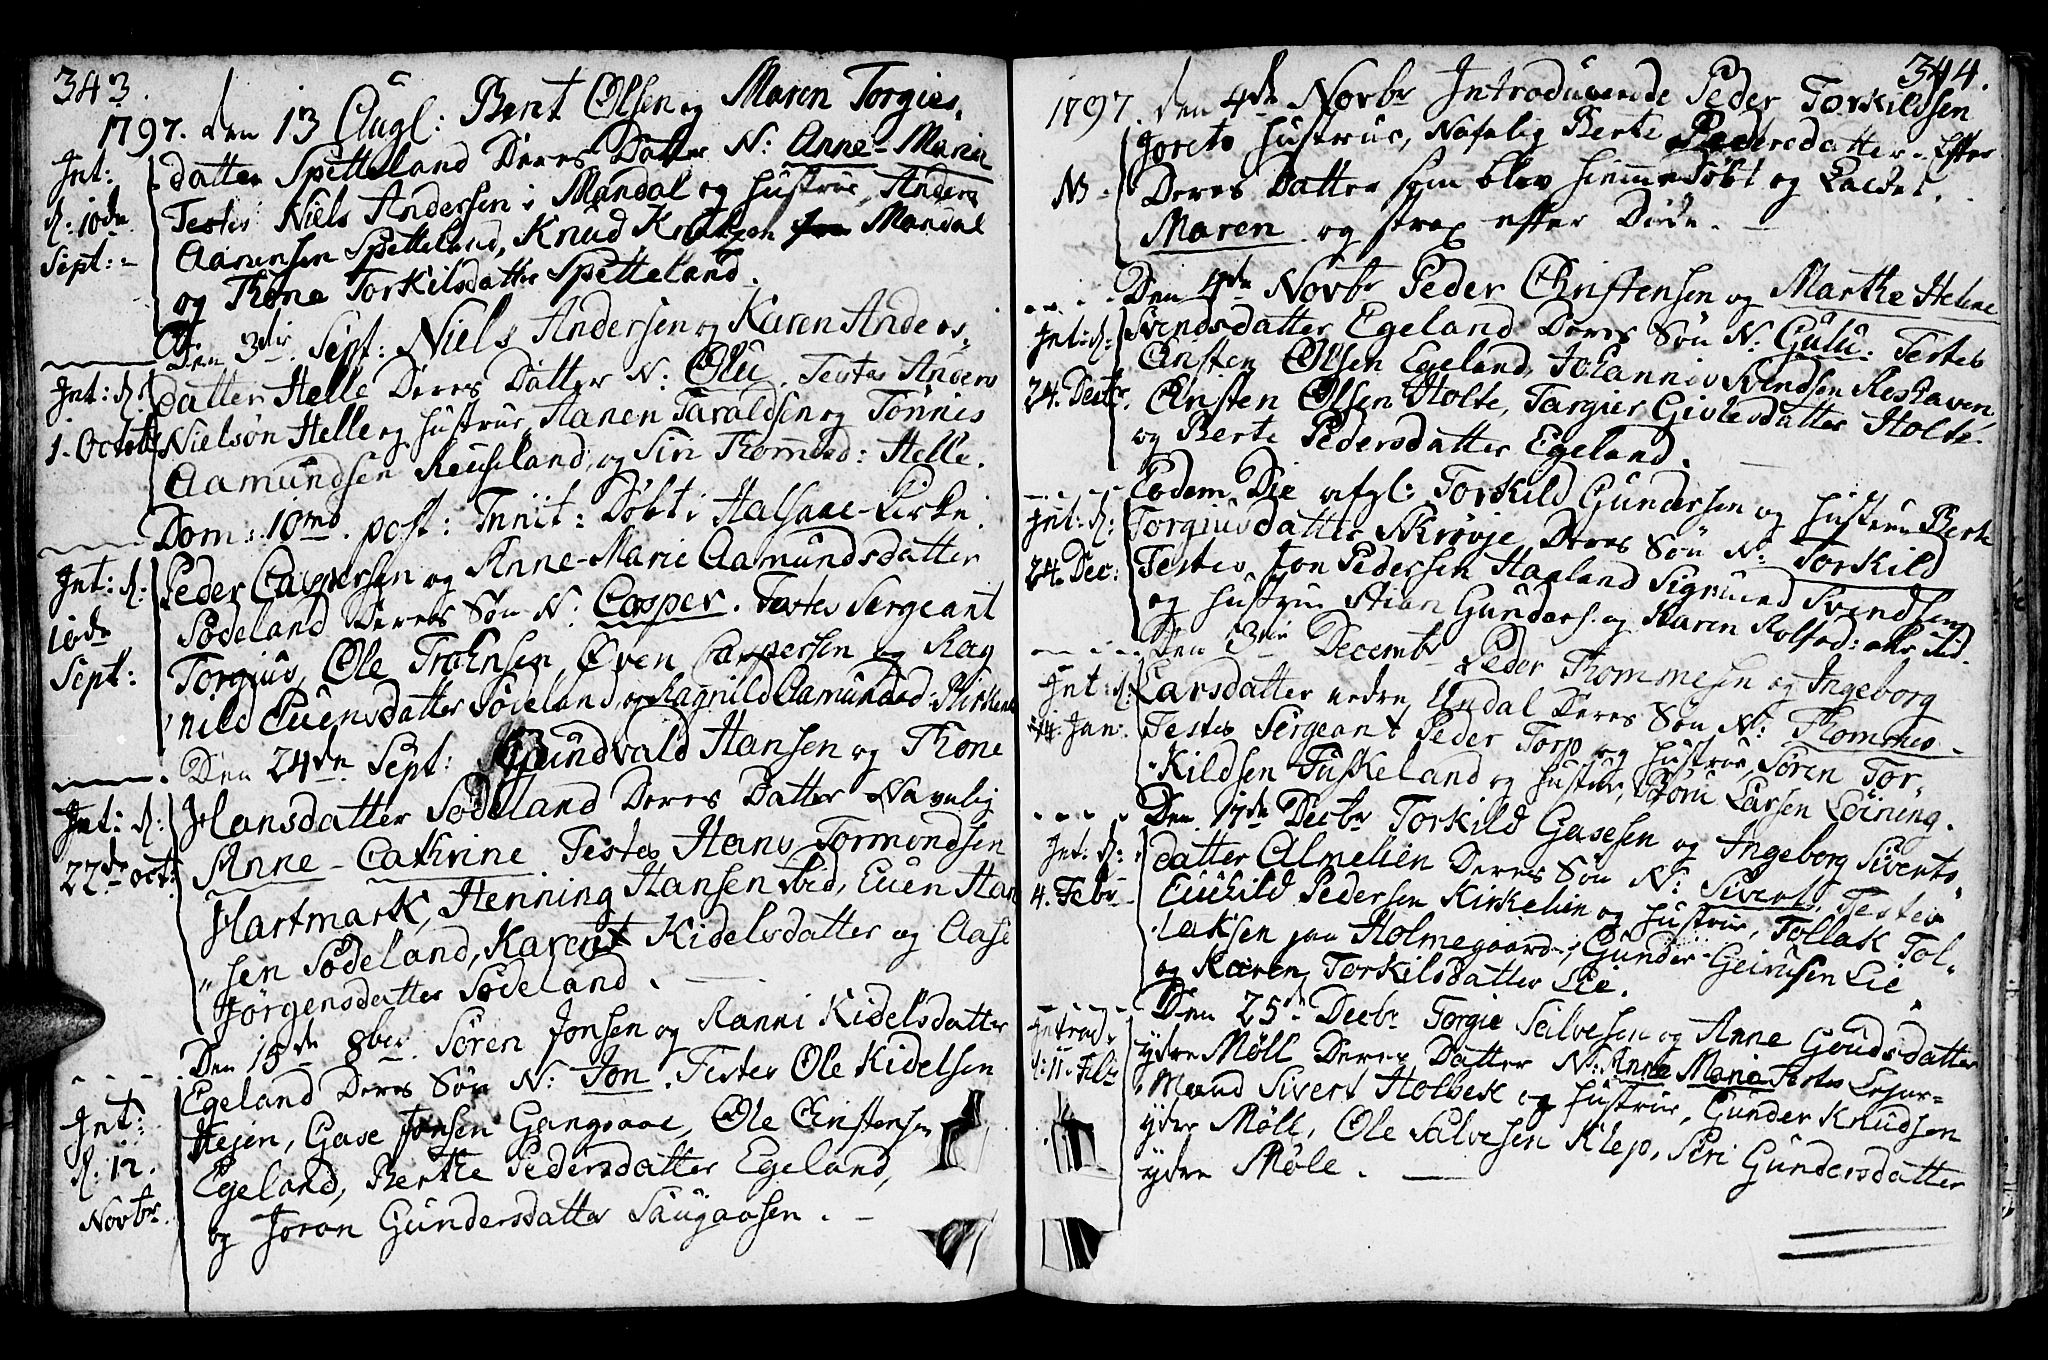 343.
1797. den 13 Augl: Bent Olsen og Maren Torgies-
datter Spetteland Deres Datter N: Anne-Marie
Testes Niels Andersen i Mandal og Hustrue, Anders
Aanensen Spetteland, Knud Knudsen Mandal
og Thone Torkilsdatter Spetteland.
Int:
d: 10de
Sept:
Den 3die Sept: Niels Andersen og Karen Anders-
datter Helle Deres Datter N: Olu. Testes Anders
Nielsøn Helle og Hustrue, Aanen Taraldsen og Tönnis
Aamundsen Reuseland, og Siri Thomasd: Helle.
Int: d:
1. Octobr
Dom: 10md. post: Trinit: Döbt i Halsaae-Kirke.
Peder Caspersen og Anne-Marie Aamundsdatter
Södeland Deres Sön N: Casper. Testes Sergeant
Torgius, Ole Troensen, Öven Caspersen og Rag
nild Euensdatter Södeland, og Ragnild Aamundsd:
Int: d:
10de
Sept:
Den 24de Sept: Gundvald Hansen og Thone
Hansdatter Södeland Deres Datter Navnlig
Anne-Cathrine Testes Hans Tormondsen
Hartmark, Henning Hansen ibid, Euen Han
"sen Södeland, Karen Kidelsdatter og Aase
Jörgensdatter Södeland.
Int: d:
22de oct:
Den 15de 8ber Sören Jonsen og Ranni Kidelsdatter
Egeland Deres Sön N: Jon. Testes Ole Kidelsen
Hejen, Gase Jonsen Gangsaae, Ole Christensen
Egeland, Berthe Pedersdatter Egeland,
og Joron Gundersdatter Saugaasen.
Int:
d: 12.
Novbr.
344.
1797. den 4de Novbr Introducerede Peder Torkildsen
Hustrue, Nafnlig Berte Pedersdatter. Efter
Deres Datter som blev hiemme Döbt og Kaldet.
Maren og strax efter Döde.
NB
Den 4de Novbr Peder Christensen og Marthe Helene
Svendsdatter Egeland Deres Sön N: Gulu: Testes
Christen Olsen Egeland, Johannes Svendsen Roshaven,
Christen Olsen Holte, Targier Givlesdatter Holte.
og Berte Pedersdatter Egeland.
Int: d:
24. Decbr.
Eodem Die afgl: Torkild Gundersen og Hustrue Berte
Torgiusdatter Skrövje Deres Sön N: Torkild
Testes, Jon Pedersen Haaland Sigmund Svendsen
og Hustrue Stian Gunders. og Karen Rolfsd:
Int: d:
24. Dec:
Den 3die Decembr Peder Thommesen og Ingeborg
Larsdatter nedre Undal Deres Sön N: Thommes
Testes Sergeant Peder Torp og Hustrue, Sören Tor-
"kildsen Fuskeland og Hustrue, Larsen Löining.
Int: d:
14. Jan:
Den 17de Decbr Torkild Gasesen og Ingeborg Siverts
datter Almelien Deres Sön N: Sivert, Testes
Eiulild Pedersen Kirkelien og Hustrue, Tollak Tol-
"laksen paa Holmegaard, Gunder Geirusen Lie
og Karen Torkilsdatter Lie.
Int: d:
4. Febr
Den 25de Decbr Torgie Salvesen og Anne Goudsdatter
ydre Möll Deres Datter N: Anne Maria Testes Lejur-
"mand Sivert Holbek og Hustrue, Gunder Knudsen
ydre Möll, Ole Salvesen Klep, Siri Gundersdatter
ydre Möle.
Introd.
d: 11. Febr